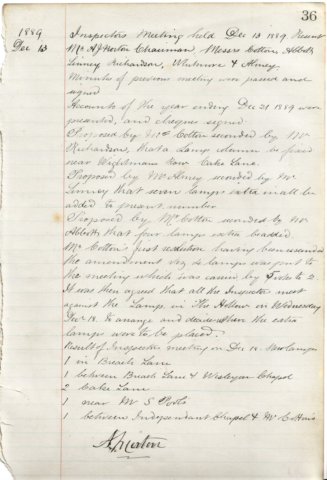 36
1889
Dec 13
Inspectors Meeting held Dec 13 1889 Present
Mr A J Norton Chairman Messrs Cotton, Abbott
Linney Richardson, Whitmore & Almey
Minutes of previous meeting was passed and
signed
Accounts of the year ending Dec 31 1889 were
presented, and cheques signed
Proposed by Mr Cotton seconded by Mr
Richardson, that a Lamp column be fixed
near Wightmans Row Cake Lane.
Proposed by Mr Almey seconded by Mr
Linney that seven lamps extra shall be
added to present number
Proposed by Mr Cotton seconded by Mr
Abbott that four lamps extra be added
Mr Cotton's first resolution having been seconded
the amendment viz 4 lamps was put to
the meeting which was carried by 5 votes to 2.
It was then agreed that all the Inspectors meet
against the Lamp, in The Hollow on Wednesday
Dec 18. to arrange and decide where the extra
lamps were to be placed.
Result of Inspectors meeting on Dec 18. New lamps
1 in Breach Lane
1 between Breach Lane & Wesleyan Chapel
2 Cake Lane
1 near Mr S
1 between Independant Chapel & Mr C
A J Norton